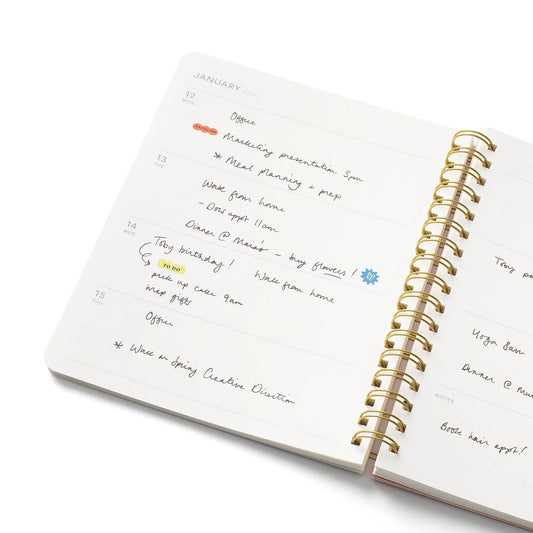 JANUARY
12
MON
Office
DEADLINE
Marketing presentation 3pm
* Meal planning + prep
13
TUE
Work from home
- Docs appt 11am
Dinner @ Maria's - buy flowers!
14
WED
Toby birthday! Work from home
TO DO
pick up cake 9am
wrap gifts
15
THU
Office
* Work on Spring Creative Direction
Toby
Yoga 8am
Dinner @
NOTES
Book hair appt!